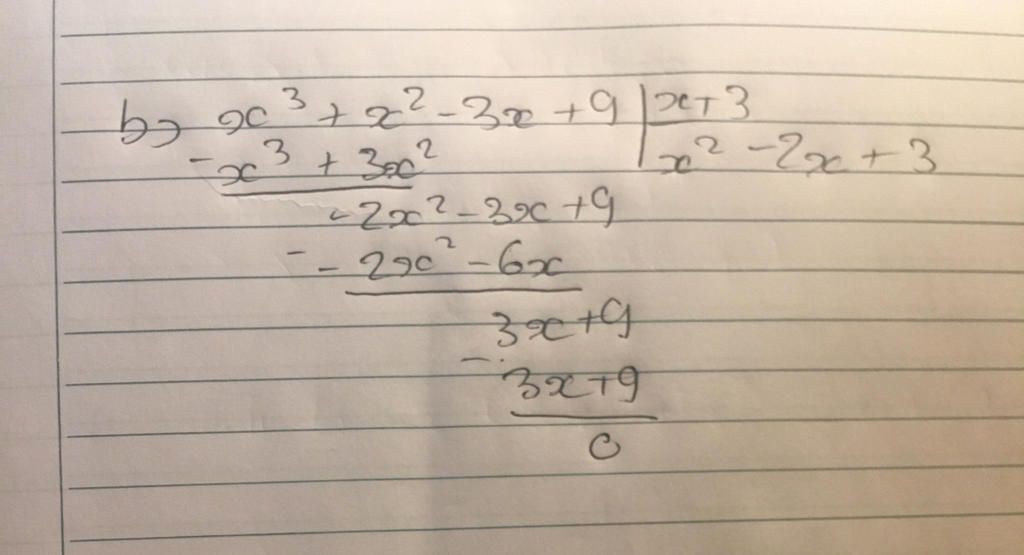 b) x³ + x² - 3x + 9 | x + 3
- x³ + 3x² | x² - 2x + 3
- 2x² - 3x + 9
- - 2x² - 6x
3x + 9
- 3x + 9
0